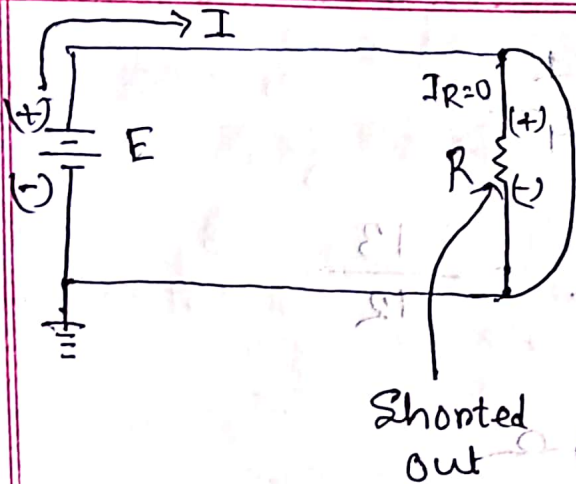 I
(+)
E
(-)
IR=0
(+)
R
(-)
Shorted
out